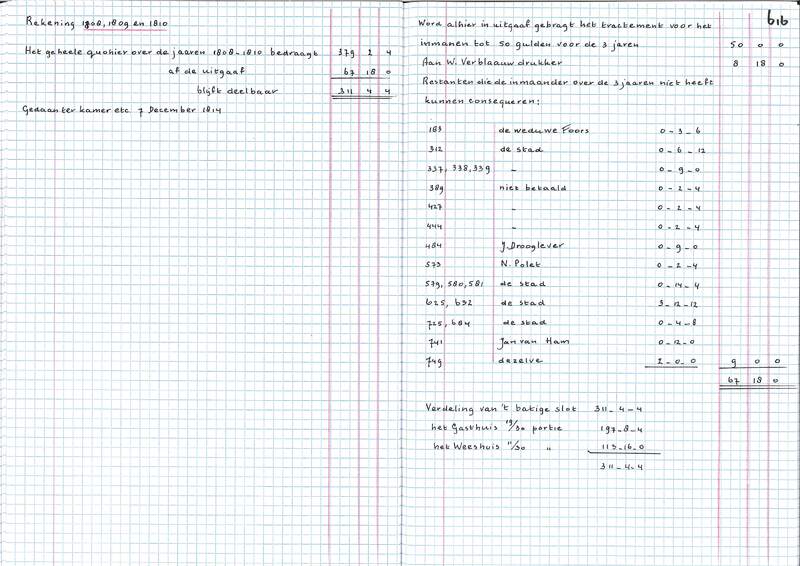 Rekening 1808, 1809 en 1810
Het geheele quohier over de jaaren 1808-1810 bedraagt 379 2 4
af de uitgaaf 67 18 0
blijft deelbaar 311 4 4
Gedaan ter kamer etc 7 December 1814
616
Word alhier in uitgaaf gebragt het tractement voor het
inmanen tot 50 gulden voor de 3 jaren 50 0 0
Aan W. Verblaauw drukker 8 18 0
Restanten die de inmaander over de 3 jaaren niet heeft
kunnen consequeren:
183 de weduwe Foors 0-3-6
312 de stad 0-6-12
337, 338, 339 " 0-9-0
389 niet betaald 0-2-4
427 " 0-2-4
444 " 0-2-4
484 J. Drooglever 0-9-0
573 N. Polet 0-2-4
579, 580, 581 de stad 0-14-4
625, 632 de stad 3-12-12
725, 684 de stad 0-4-8
741 Jan van Ham 0-12-0
749 dezelve 2-0-0 9 0 0
67 18 0
Verdeling van 't batige slot 311-4-4
het Gasthuis 19/30 portie 197-8-4
het Weeshuis 11/30 " 113-16-0
311-4-4